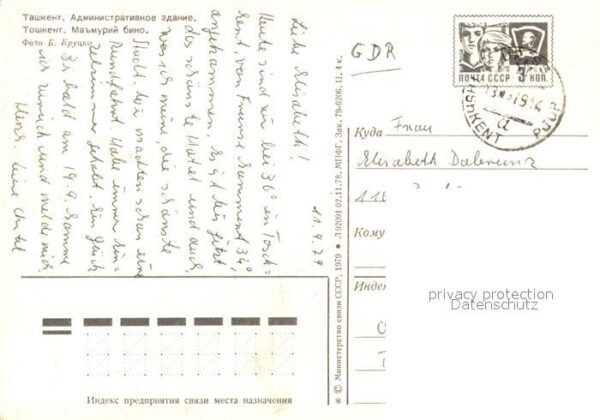 Ташкент. Административное здание.
Тошкент. Маъмурий бино.
Фото Б. Круцко
11.9.79
Liebe Elisabeth!
Heute sind wir bei 36° in Tasch=
kent, von Frunse kommend 34°
angekommen. Es ist bis jetzt
das schönste Hotel und auch,
was ich meine, die schönste
Stadt. Wir machten schon eine
Rundfahrt. Habe immer Ein=
zelzimmer gehabt. Ein Glück
Bis bald am 19.9. komme
ich zurück und melde mich.
Herzl. Deine
* © Министерство связи СССР, 1979 ● Л 92091 02.11.78. МПФГ. Зак. 79-6206. 11. 4 к.
GDR
ПОЧТА СССР 3 КОП.
TASHKENT
Куда Frau
Elisabeth
11
Кому
Индекс
privacy protection
Datenschutz
Индекс предприятия связи места назначения